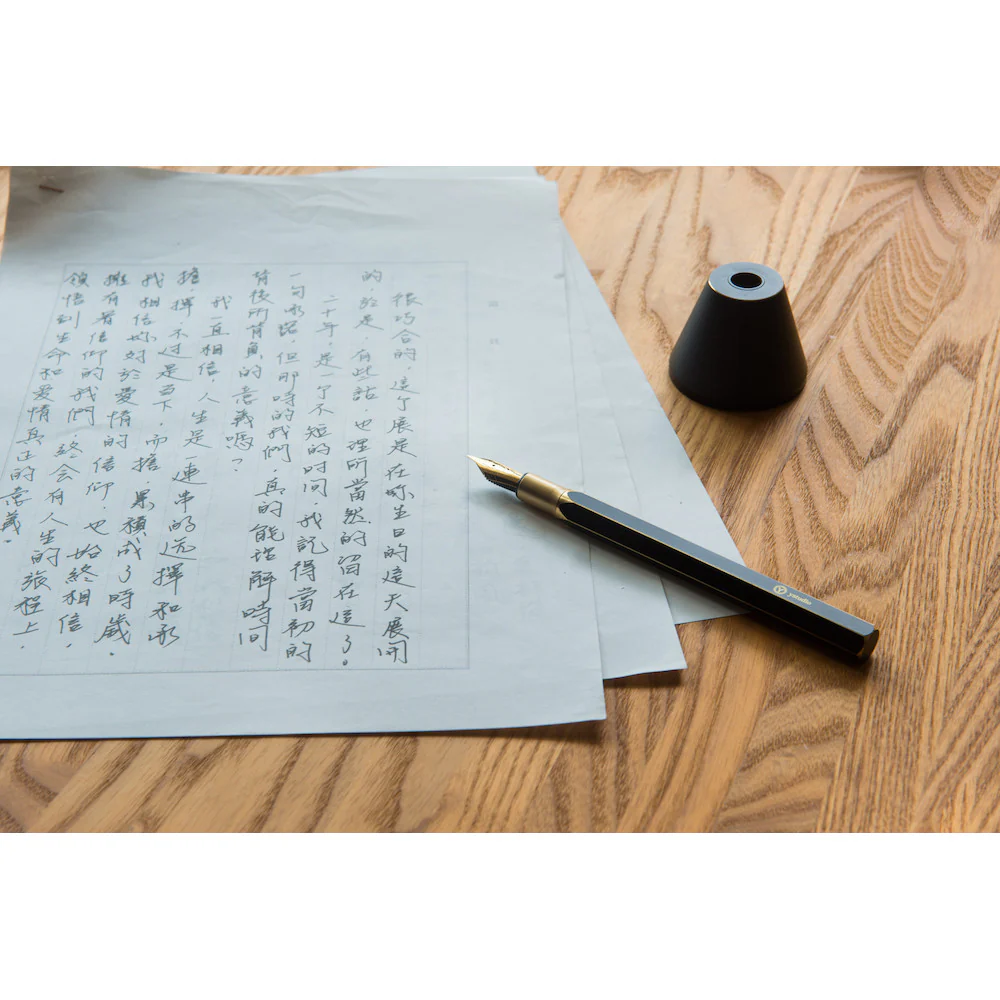 很巧合的，這个展是在妳生日的這天展開
的，於是，有些話，也理所當然的留在這了。
二十年，是一个不短的时间，我記得當初的
一句承諾，但那時的我們，真的能理解時间
背後所背負的意義嗎？
我一直相信，人生是一連串的选擇和承
擔，擇不过是当下，而擔，累積成了時歲。
我相信妳对於愛情的信仰，也始終相信，
擁有著信仰的我們，終会有人生的旅程上，
領悟到生命和愛情真正的意義。
ystudio